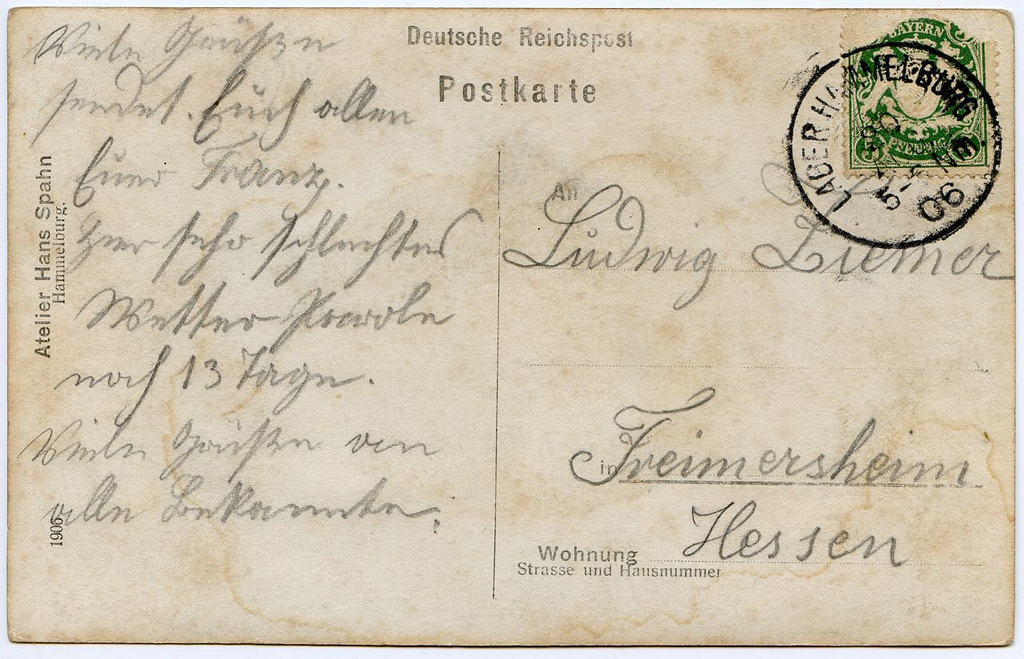 Deutsche Reichspost
Postkarte
Viele Grüße
sendet Euch allen
Euer Franz.
Hier sehr schlechtes
Wetter Parole
noch 13 Tage.
Viele Grüße an
alle Bekannte.
Atelier Hans Spahn
Hammelburg.
1906
BAYERN
PFENNIG
LAGER HAMMELBURG
06
An
Ludwig Ziemer
in Freimersheim
Hessen
Wohnung
Strasse und Hausnummer